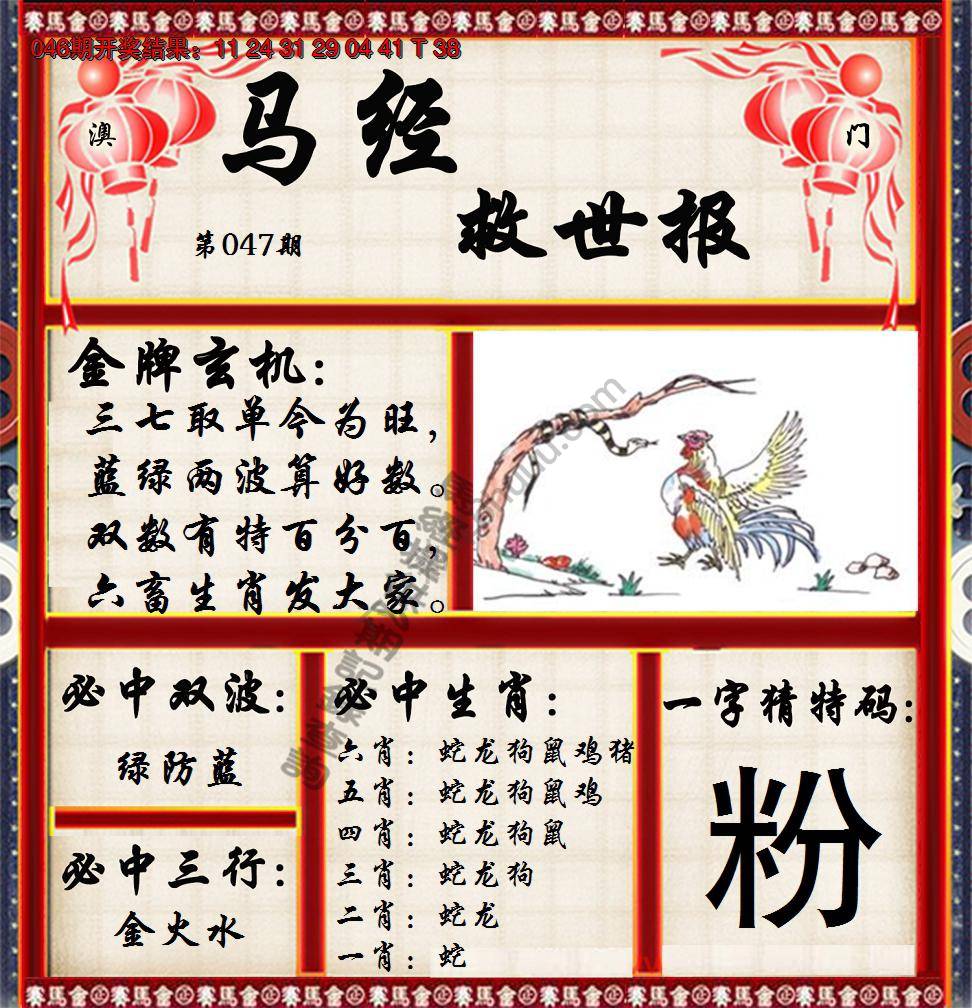 046期开奖结果：11 24 31 29 04 41 T 38
澳
门
马经
救世报
第047期
金牌玄机：
三七取单今为旺，
蓝绿两波算好数。
双数有特百分百，
六畜生肖发大家。
必中双波：
绿防蓝
必中三行：
金火水
必中生肖：
六肖：蛇龙狗鼠鸡猪
五肖：蛇龙狗鼠鸡
四肖：蛇龙狗鼠
三肖：蛇龙狗
二肖：蛇龙
一肖：蛇
一字猜特码：
粉